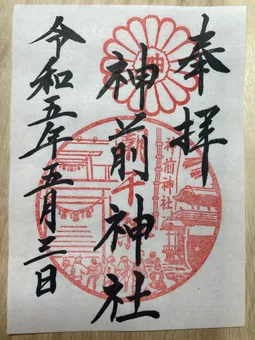 奉拝
神前神社
神前神社
令和五年五月三日